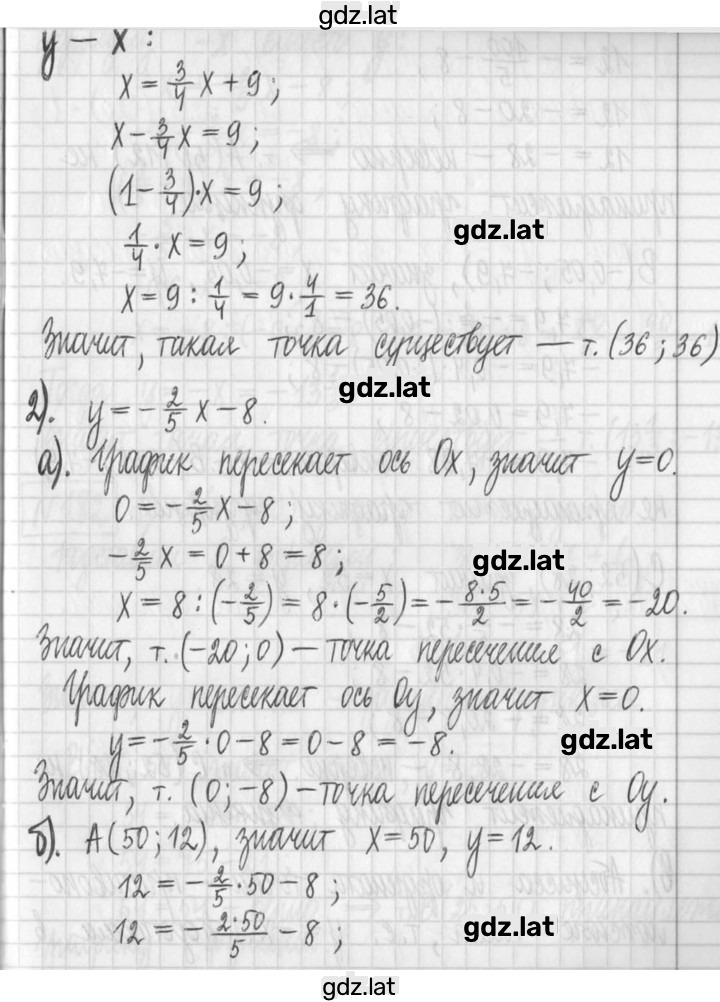 gdz.lat
y – x :
x = 3/4 x + 9 ;
x – 3/4 x = 9 ;
(1 – 3/4) · x = 9 ;
gdz.lat
1/4 · x = 9 ;
x = 9 : 1/4 = 9 · 4/1 = 36.
Значит, такая точка существует — т. (36 ; 36)
gdz.lat
2). y = – 2/5 x – 8.
а). График пересекает ось Ox, значит y = 0.
0 = – 2/5 x – 8 ;
– 2/5 x = 0 + 8 = 8 ;
gdz.lat
x = 8 : (– 2/5) = 8 · (– 5/2) = – 8·5/2 = – 40/2 = –20.
Значит, т. (–20 ; 0) – точка пересечения с Ox.
График пересекает ось Oy, значит x = 0.
y = – 2/5 · 0 – 8 = 0 – 8 = –8.
gdz.lat
Значит, т. (0 ; –8) – точка пересечения с Oy.
б). A (50 ; 12), значит x = 50, y = 12.
12 = – 2/5 · 50 – 8 ;
12 = – 2·50/5 – 8 ;
gdz.lat
gdz.lat